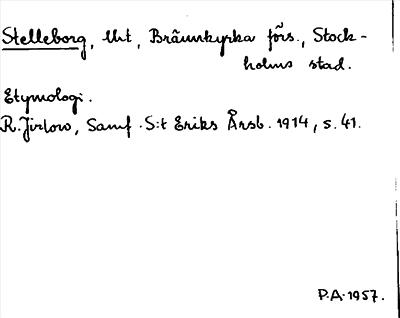 Stelleborg, lht, Brännkyrka förs., Stock-
holms stad.
Etymologi.
R. Jirlow, Samf. S:t Eriks Årsb. 1914, s. 41.
P.A. 1957.